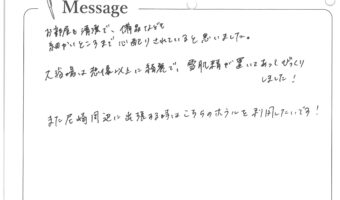 Message
お部屋も清潔で、備品なども
細かいところまで心配りされていると思いました。
大浴場は想像以上に綺麗で、雪肌精が置いてあってびっくり
しました！
また尼崎周辺に出張する時はこちらのホテルを利用したいです！